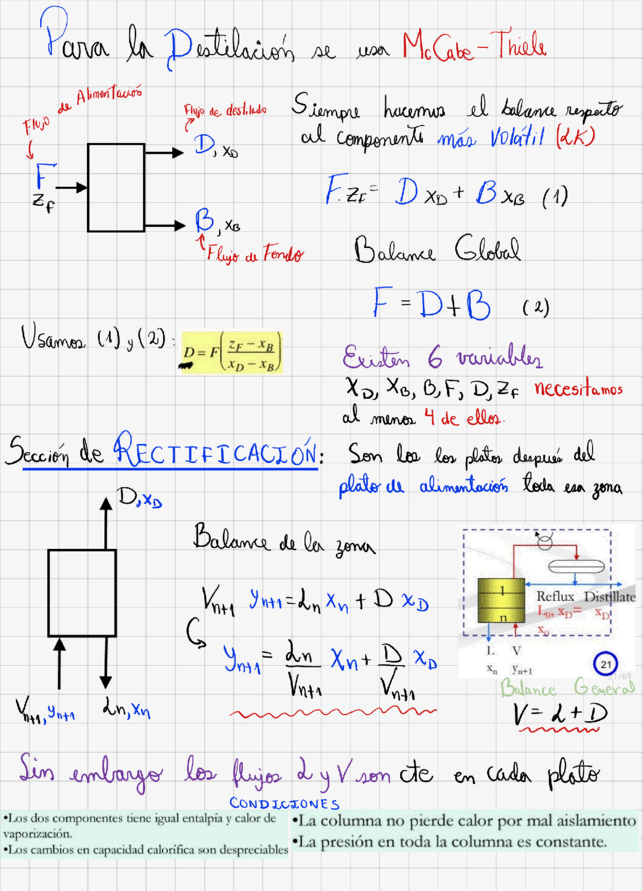 Para la Destilación se usa McCabe-Thiele
Flujo de Alimentación
F
z_F
Flujo de destilado
D, x_D
B, x_B
Flujo de Fondo
Siempre hacemos el balance respecto
al componente más Volátil (LK)
F·z_F = D x_D + B x_B (1)
Balance Global
F = D + B (2)
Usamos (1) y (2):
D = F( (z_F − x_B) / (x_D − x_B) )
Existen 6 variables
x_D, x_B, B, F, D, z_F necesitamos
al menos 4 de ellos.
Sección de RECTIFICACIÓN: Son los los platos después del
plato de alimentación toda esa zona
D, x_D
V_{n+1}, y_{n+1} L_n, x_n
Balance de la zona
V_{n+1} y_{n+1} = L_n x_n + D x_D
y_{n+1} = L_n/V_{n+1} x_n + D/V_{n+1} x_D
1
n
Reflux Distillate
L_0, x_D= x_D
x_0
L V
x_n y_{n+1}
21
Balance General
V = L + D
Sin embargo los flujos L y V son cte en cada plato
CONDICIONES
•Los dos componentes tiene igual entalpía y calor de
vaporización.
•Los cambios en capacidad calorífica son despreciables
•La columna no pierde calor por mal aislamiento
•La presión en toda la columna es constante.